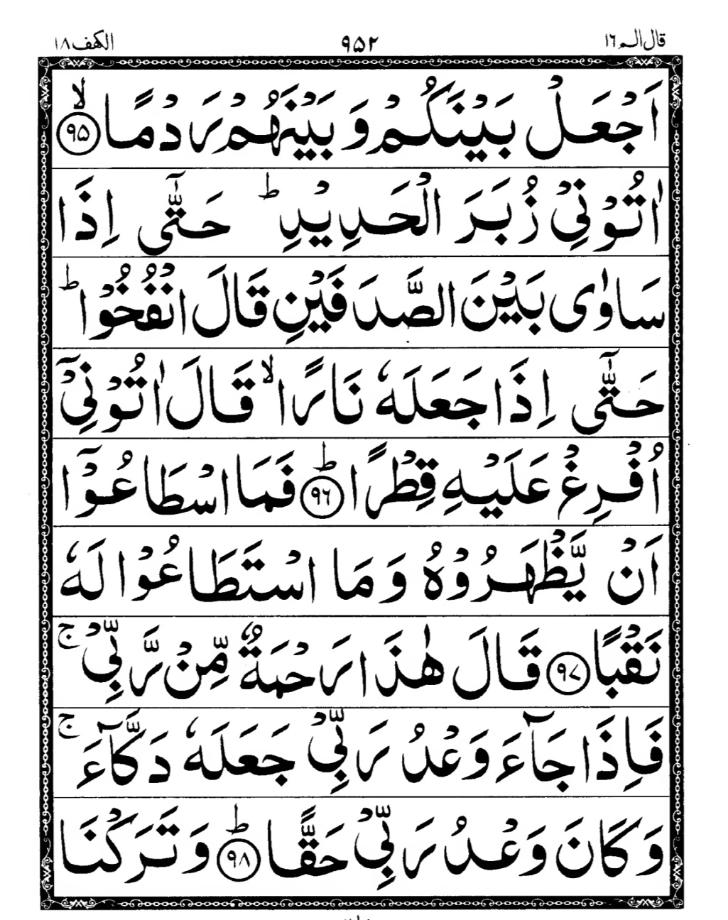 قال الم ١٦ ٩٥٢ الكهف ١٨
اَجْعَلْ بَيْنَكُمْ وَ بَيْنَهُمْ رَدْمًا ۙ﴿۹۵﴾
اٰتُوْنِیْ زُبَرَ الْحَدِيْدِ ؕ حَتّٰۤی اِذَا
سَاوٰی بَيْنَ الصَّدَفَيْنِ قَالَ انْفُخُوْا ؕ
حَتّٰۤی اِذَا جَعَلَهٗ نَارًا ۙ قَالَ اٰتُوْنِیْۤ
اُفْرِغْ عَلَيْهِ قِطْرًا ؕ﴿۹۶﴾ فَمَا اسْطَاعُوْۤا
اَنْ يَّظْهَرُوْهُ وَ مَا اسْتَطَاعُوْا لَهٗ
نَقْبًا ﴿۹۷﴾ قَالَ هٰذَا رَحْمَةٌ مِّنْ رَّبِّیْ ۚ
فَاِذَا جَآءَ وَعْدُ رَبِّیْ جَعَلَهٗ دَكَّآءَ ۚ
وَ كَانَ وَعْدُ رَبِّیْ حَقًّا ؕ﴿۹۸﴾ وَ تَرَكْنَا